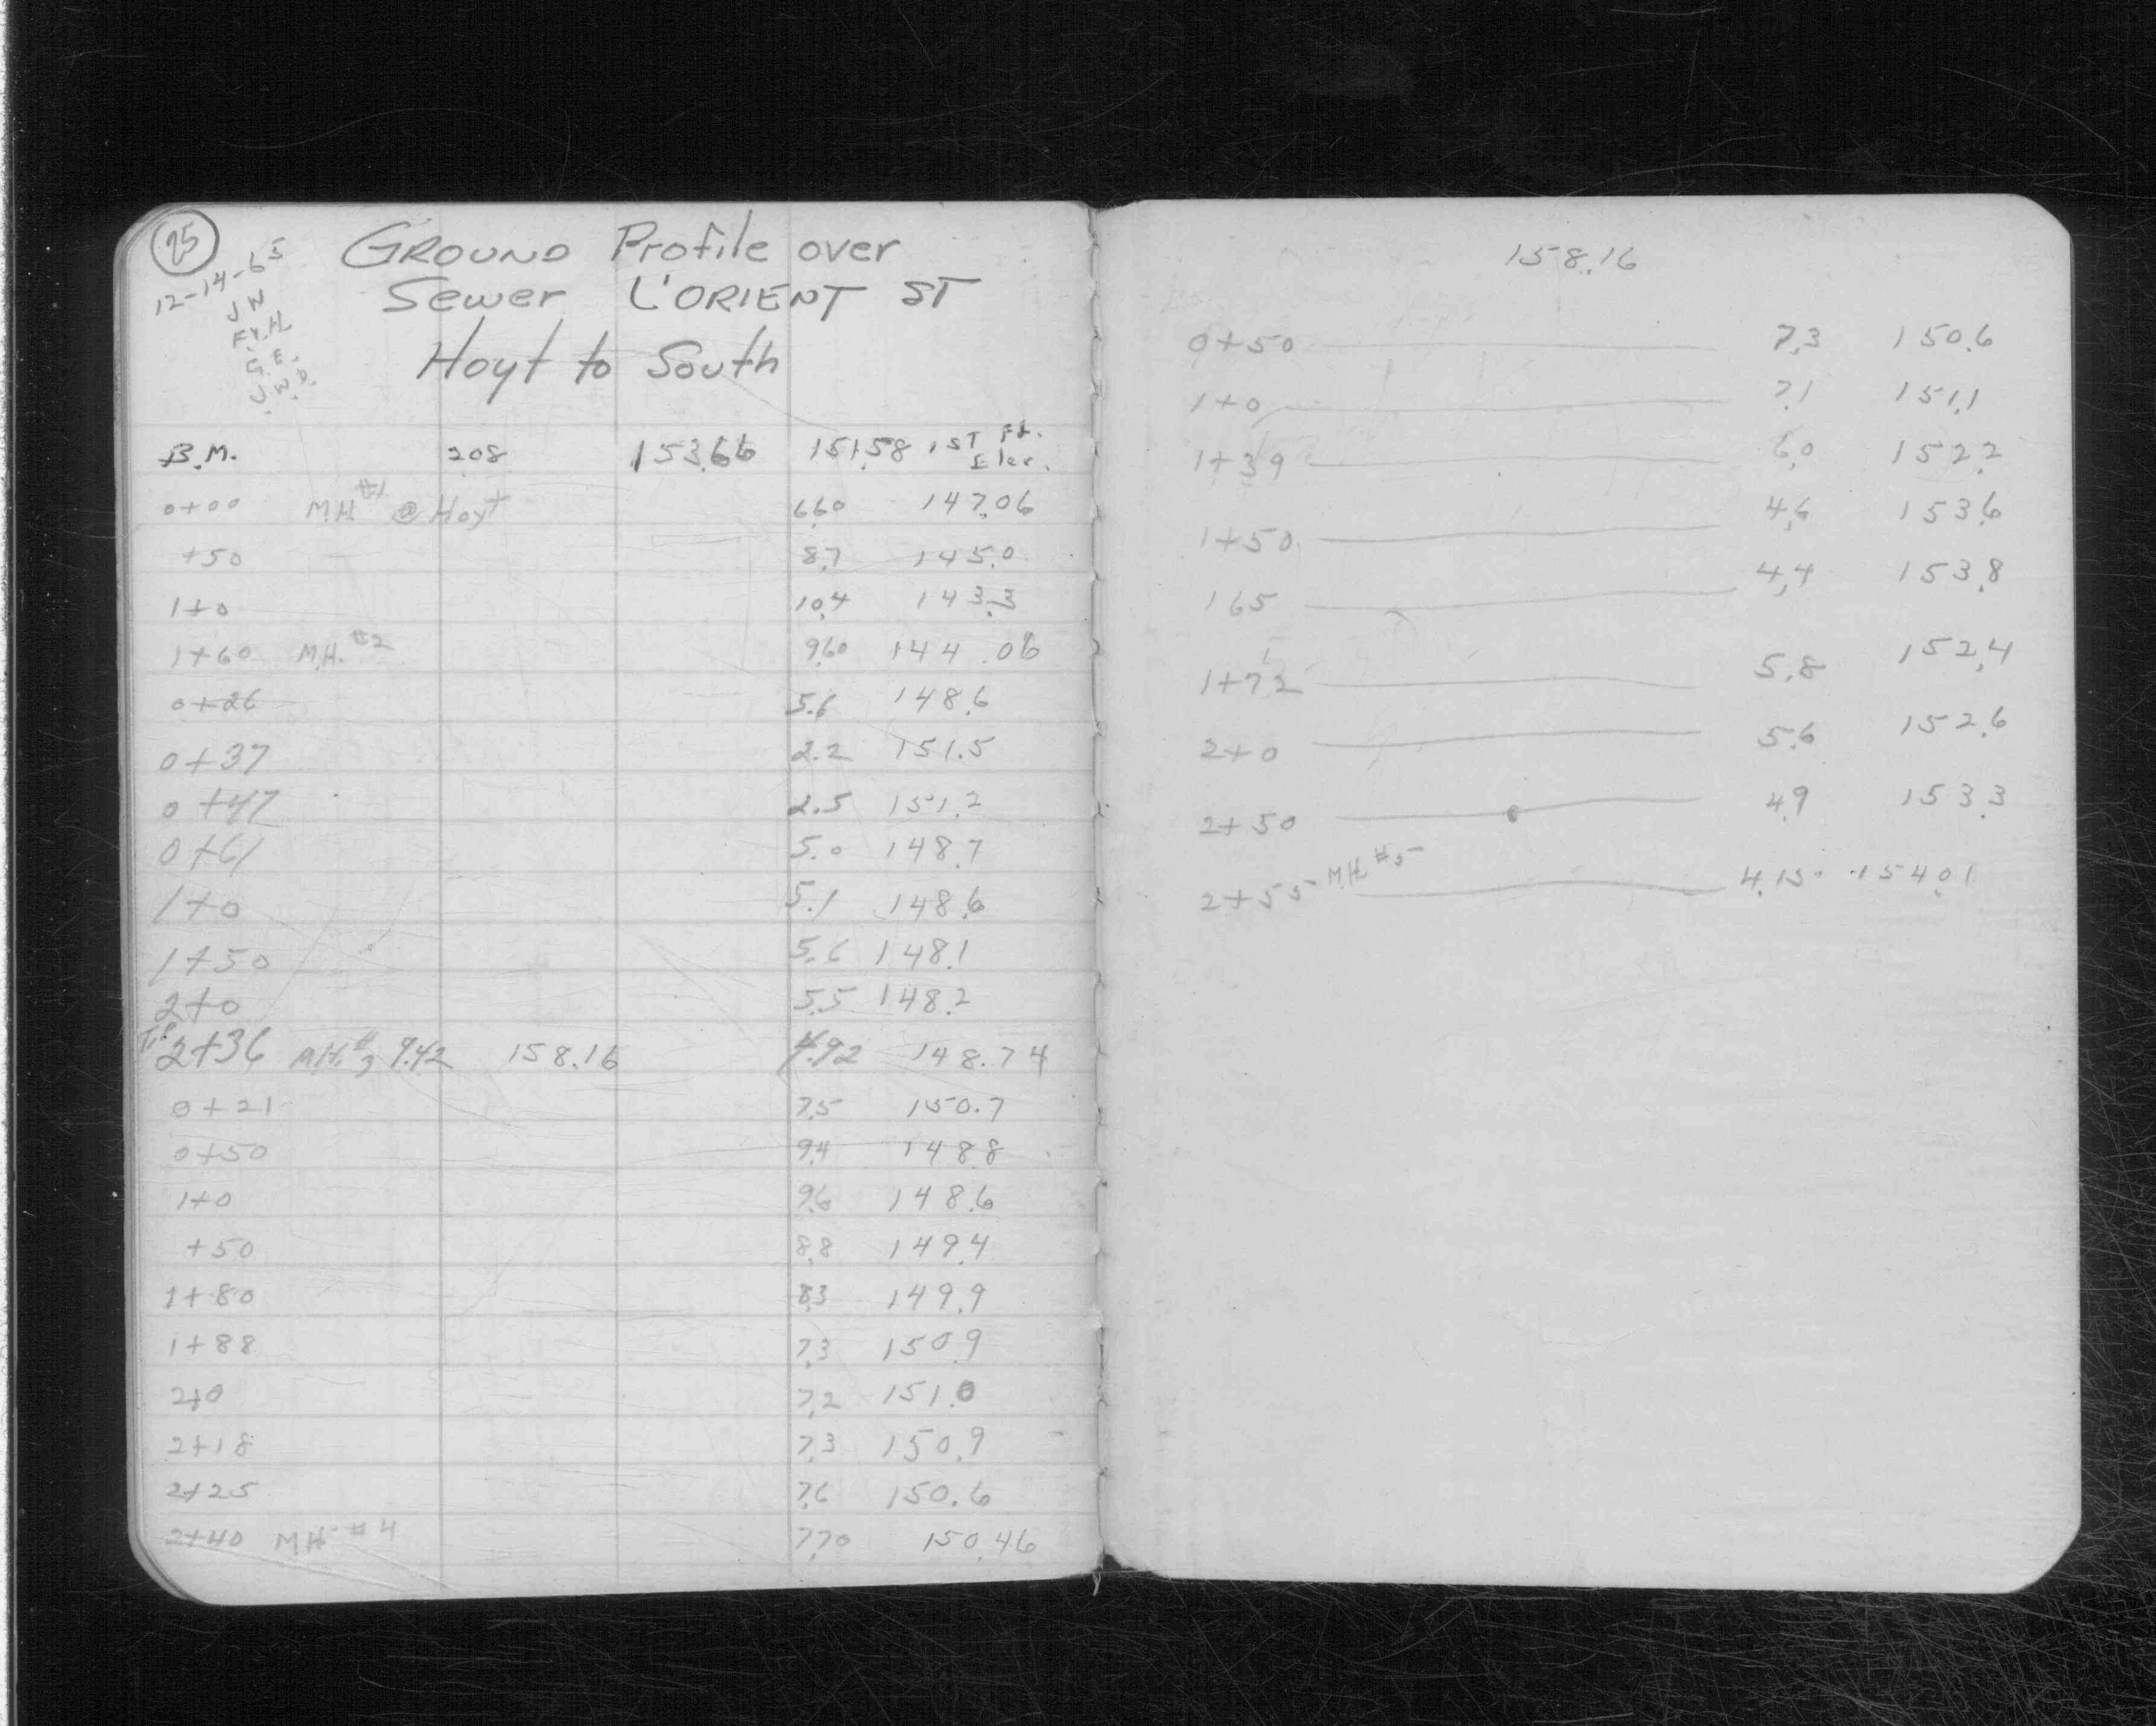 25
12-14-65
JW
Fr.H.
G.E.
J.W.D.
GROUND Profile over
Sewer L'ORIENT ST
Hoyt to South
B.M. 2.08 153.66 151.58 1ST Fl. Elec.
0+00 M.H. #1 @ Hoyt 6.60 147.06
+50 8.7 145.0
1+0 10.4 143.3
1+60 M.H. #2 9.60 144.06
0+26 5.1 148.6
0+37 2.2 151.5
0+47 2.5 151.2
0+61 5.0 148.7
1+0 5.1 148.6
1+50 5.6 148.1
2+0 5.5 148.2
T.P. 2+36 M.H. #3 9.42 158.16 4.92 148.74
0+21 7.5 150.7
0+50 9.4 148.8
1+0 9.6 148.6
+50 8.8 149.4
1+80 8.3 149.9
1+88 7.3 150.9
2+0 7.2 151.0
2+18 7.3 150.9
2+25 7.6 150.6
2+40 M.H. #4 7.70 150.46
158.16
0+50 7.3 150.6
1+0 7.1 151.1
1+39 6.0 152.2
1+50 4.6 153.6
165 4.4 153.8
1+72 5.8 152.4
2+0 5.6 152.6
2+50 4.9 153.3
2+55 M.H. #5 4.15 154.01